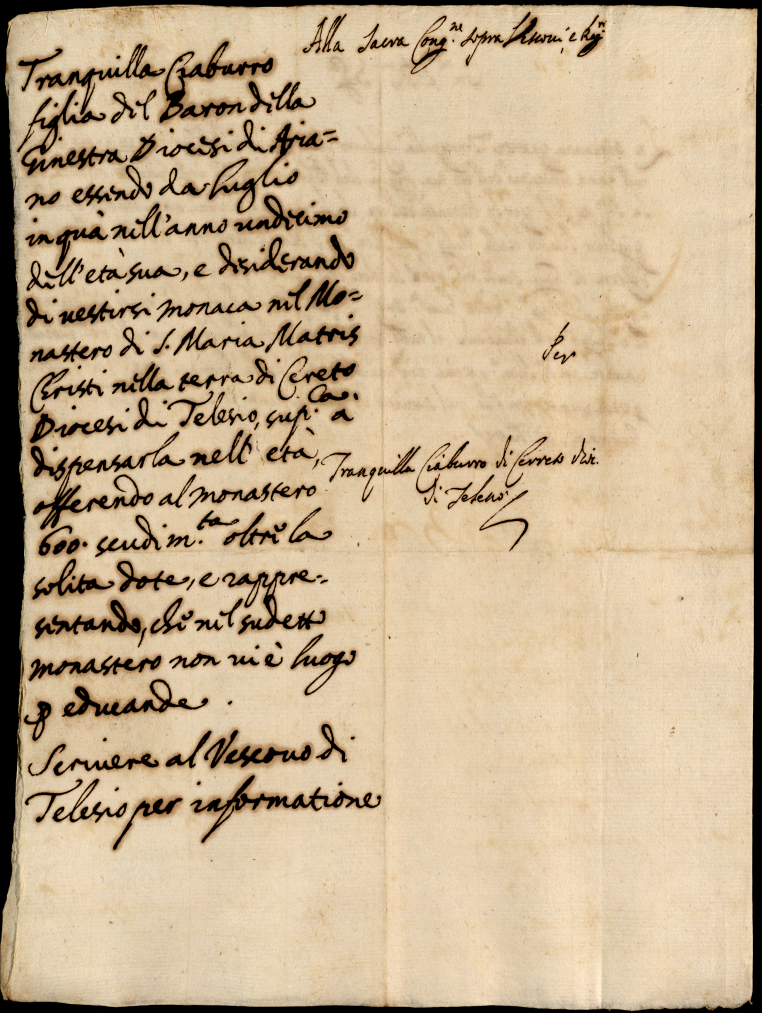 Alla Sacra Cong.ne sopra Vescovi, e Reg.ri
Tranquilla Ciaburro
figlia del Baron della
Ginestra Diocesi di Aria=
no essendo da luglio
in quà nell'anno undecimo
dell'età sua, e desiderando
di vestirsi monaca nel Mo=
nastero di S. Maria Matris
Christi nella terra di Cereto
Diocesi di Telesio, sup.ca a
dispensarla nell' età,
offerendo al monastero
600. scudi m.ta oltre la
solita dote, e rappre=
sentando, che nel sudetto
monastero non vi è luogo
p educande.
Scrivere al Vescovo di
Telesio per informatione
Per
Tranquilla Ciaburro di Cerreto dioc.
di Telese